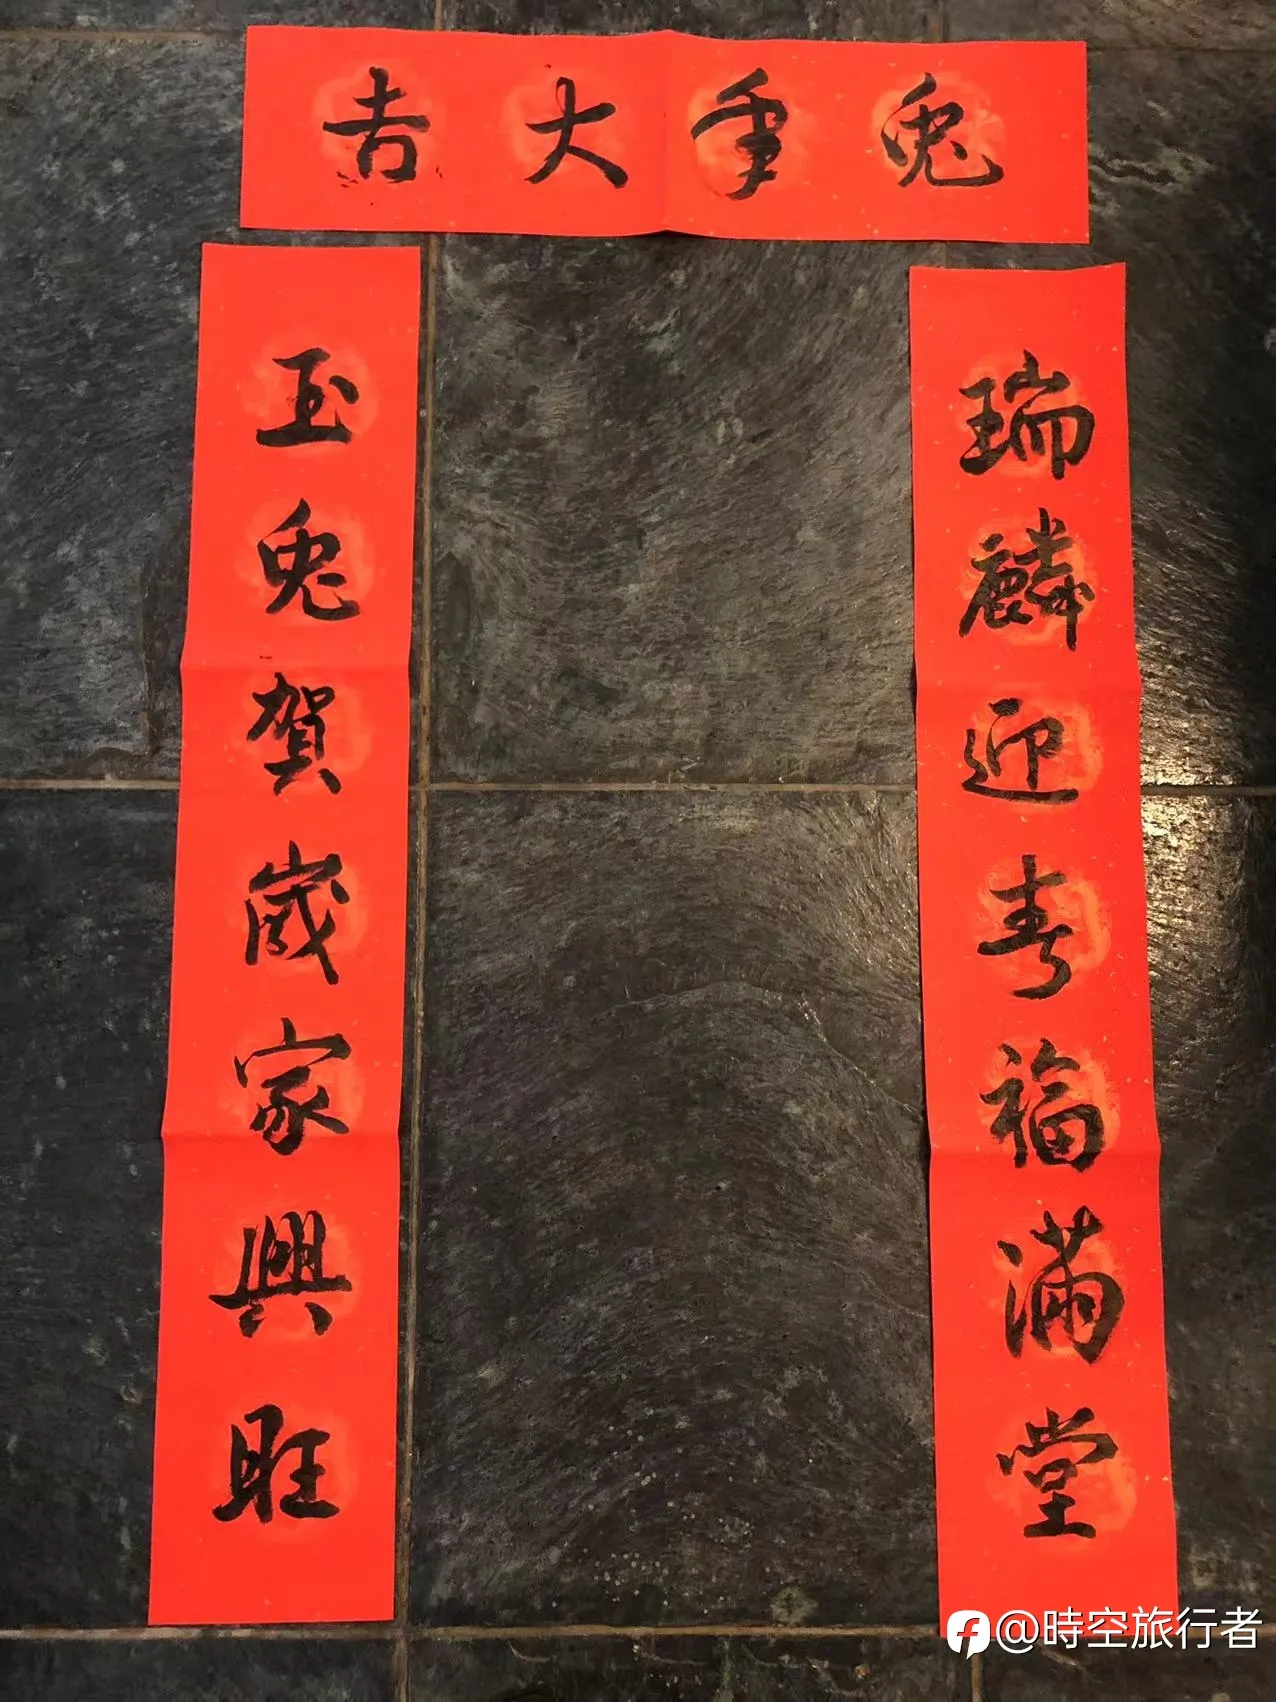 兔年大吉
瑞麟迎春福滿堂
玉兔賀歲家興旺
@時空旅行者